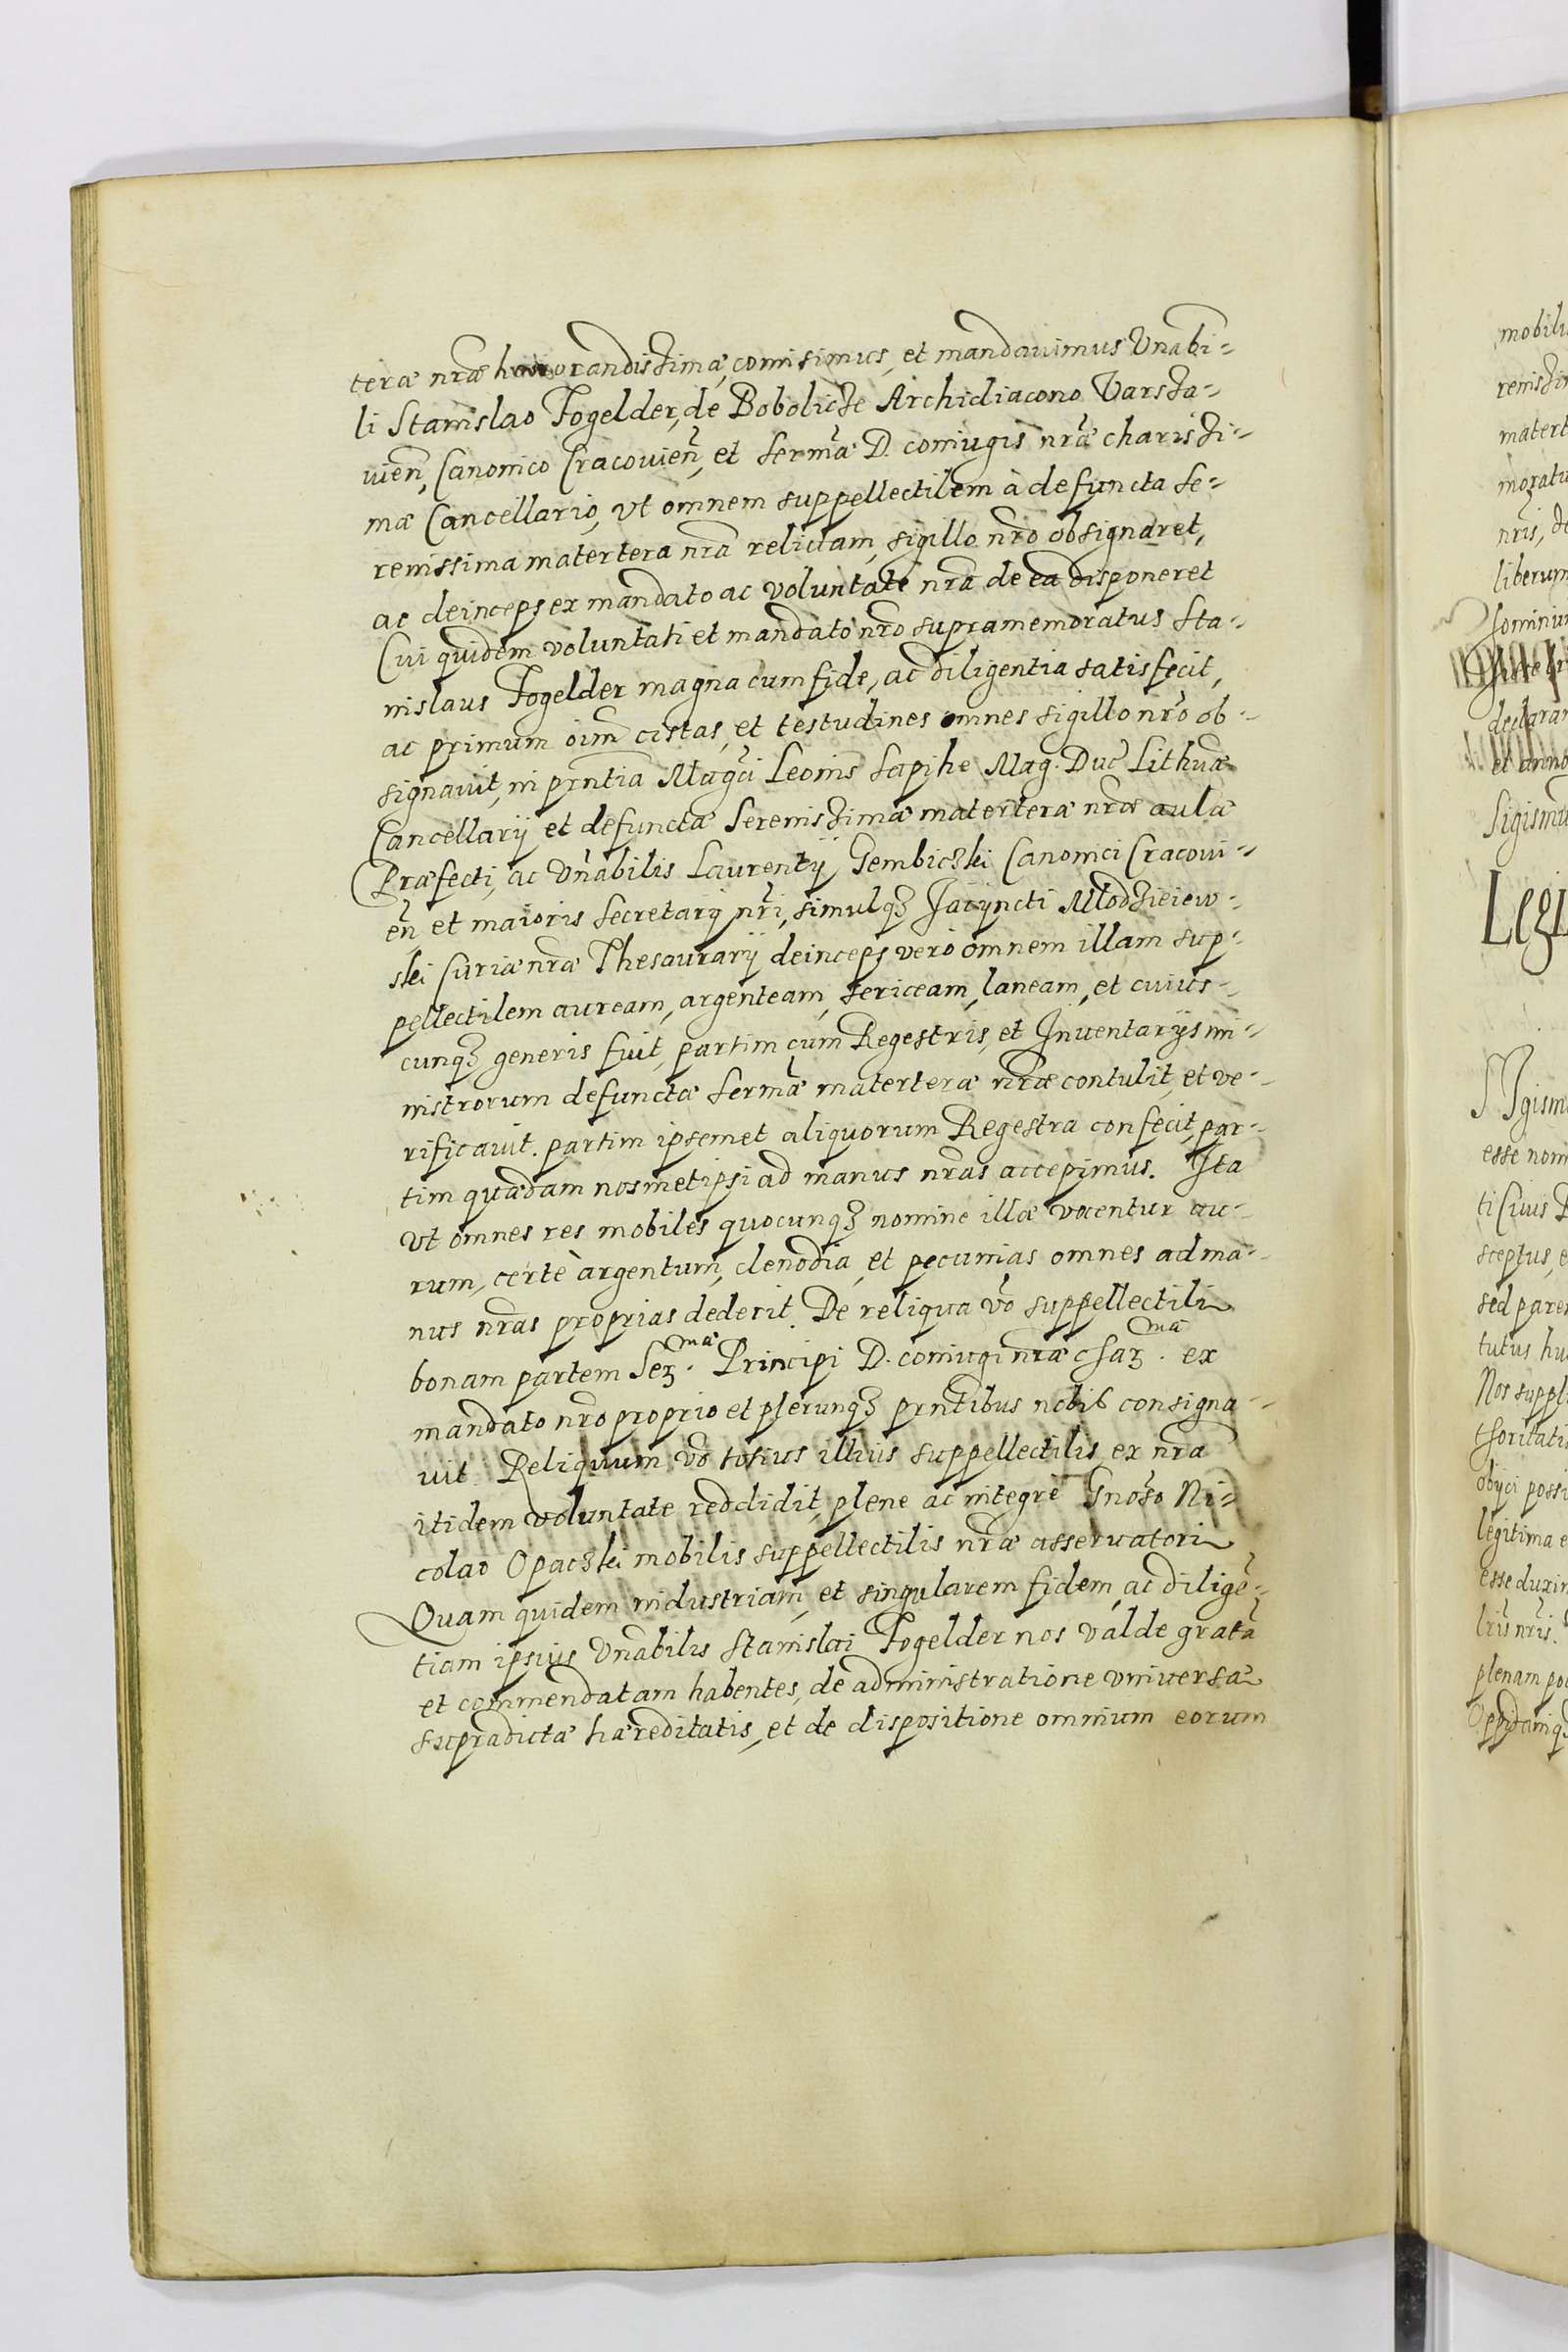 teræ nr̃æ honorandissimæ, comisimus, et mandauimus Vnabi-
li Stanislao Fogelder, de Bobolicze Archidiacono Varssa-
uień, Canonico Cracouień, et Sermæ D. coniugis nr̃æ charissi-
mæ Cancellario, vt omnem suppellectilem à defuncta Se-
renissima matertera nr̃a relictam, sigillo nr̃o obsignaret,
ac deinceps ex mandato ac voluntate nr̃a de ea disponeret
Cui quidem voluntati et mandato nr̃o supramemoratus Sta-
nislaus Fogelder magna cum fide, ac diligentia satisfecit,
ac primum oim̃ cistas, et testudines omnes sigillo nr̃o ob-
signauit, in prñtia Magci Leonis Sapihe Mag. Duc̃ Lithuæ
Cancellarij et defunctæ Serenissimæ materteræ nr̃æ aulæ
Præfecti, ac Vñabilis Laurentij Gembiczki Canonici Cracoui-
eñ et maioris Secretarij nr̃i, simulqȝ Jacyncti Mlodzieiew-
ski Curiæ nr̃æ Thesaurarij deinceps vero omnem illam sup-
pellectilem auream, argenteam, sericeam, laneam, et cuius-
cunqȝ generis fuit, partim cum Regestris, et Inuentarijs mi-
nistrorum defunctæ Sermæ materteræ nr̃æ contulit, et ve-
rificauit. partim ipsemet aliquorum Regestra confecit, par-
tim quædam nosmetipsi ad manus nr̃as accepimus. Ita
vt omnes res mobiles quocunqȝ nomine illæ vocentur au-
rum, certè argentum, clenodia, et pecunias omnes ad ma-
nus nr̃as proprias dederit. De reliqua vo suppellectili
bonam partem Serȝ.mæ Principi D. coniugi nr̃æ chaȝ.mæ ex
mandato nr̃o proprio et plerunqȝ prñtibus nobis consigna-
uit Reliquum vo totius illius suppellectilis ex nr̃a
itidem voluntate reddidit, plene ac integrè Gnoso Ni-
colao Opaczki mobilis suppellectilis nr̃æ asseruatori
Quam quidem industriam, et singularem fidem, ac diligẽ-
tiam ipsius Vñabilis Stanislai Fogelder nos valde gratã
et commendatam habentes, de administratione vniversa
supradictæ hæreditatis, et de dispositione omnium eorum